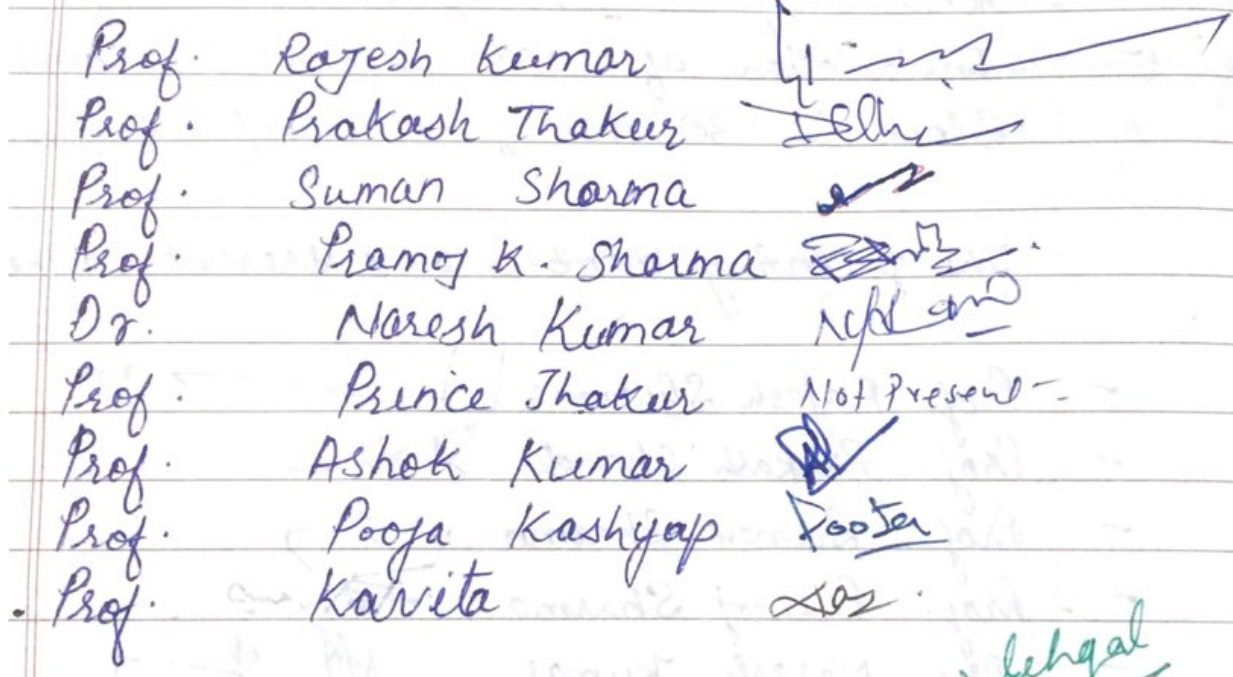 Prof. Rajesh Kumar
Prof. Prakash Thakur
Prof. Suman Sharma
Prof. Pramoj K. Sharma
Dr. Naresh Kumar
Prof. Prince Thakur Not Present -
Prof. Ashok Kumar
Prof. Pooja Kashyap
Prof. Kavita